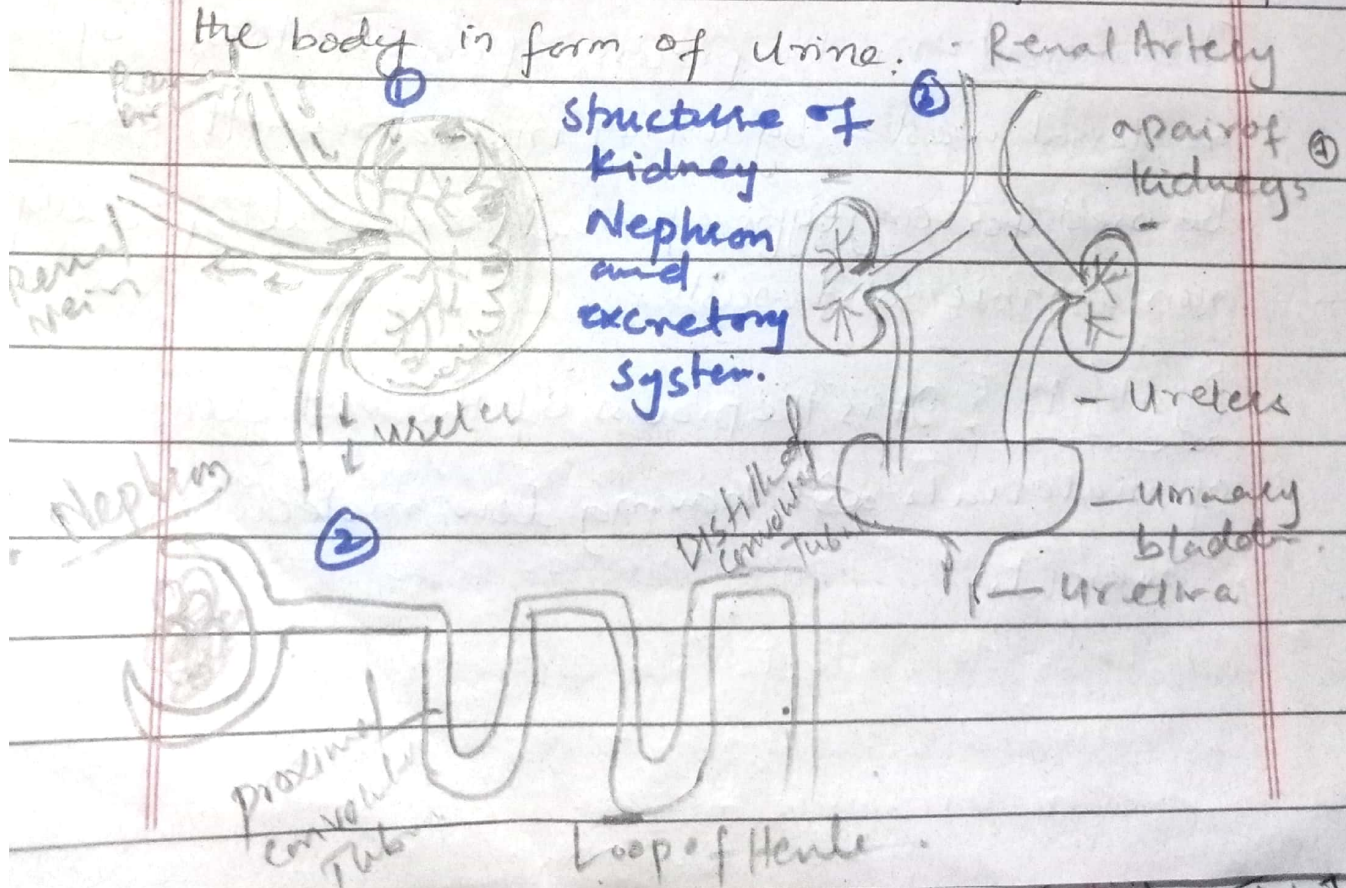 the body in form of Urine.
- Renal Artery
①
Structure of
Kidney
Nephron
and
excretory
system.
③
a pair of
kidneys
①
Renal
Renal
Vein
ureter
- Ureters
- Urinary
bladder.
- Urethra
Nephron
②
Distill of
convoluted
Tubu
proximal
convolu
Tubu
Loop of Henle.